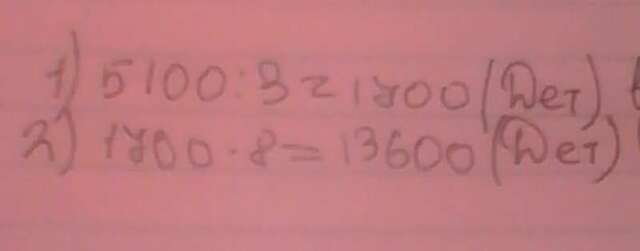 1) 5100:3=1700(Дет)
2) 1700·8=13600(Дет)